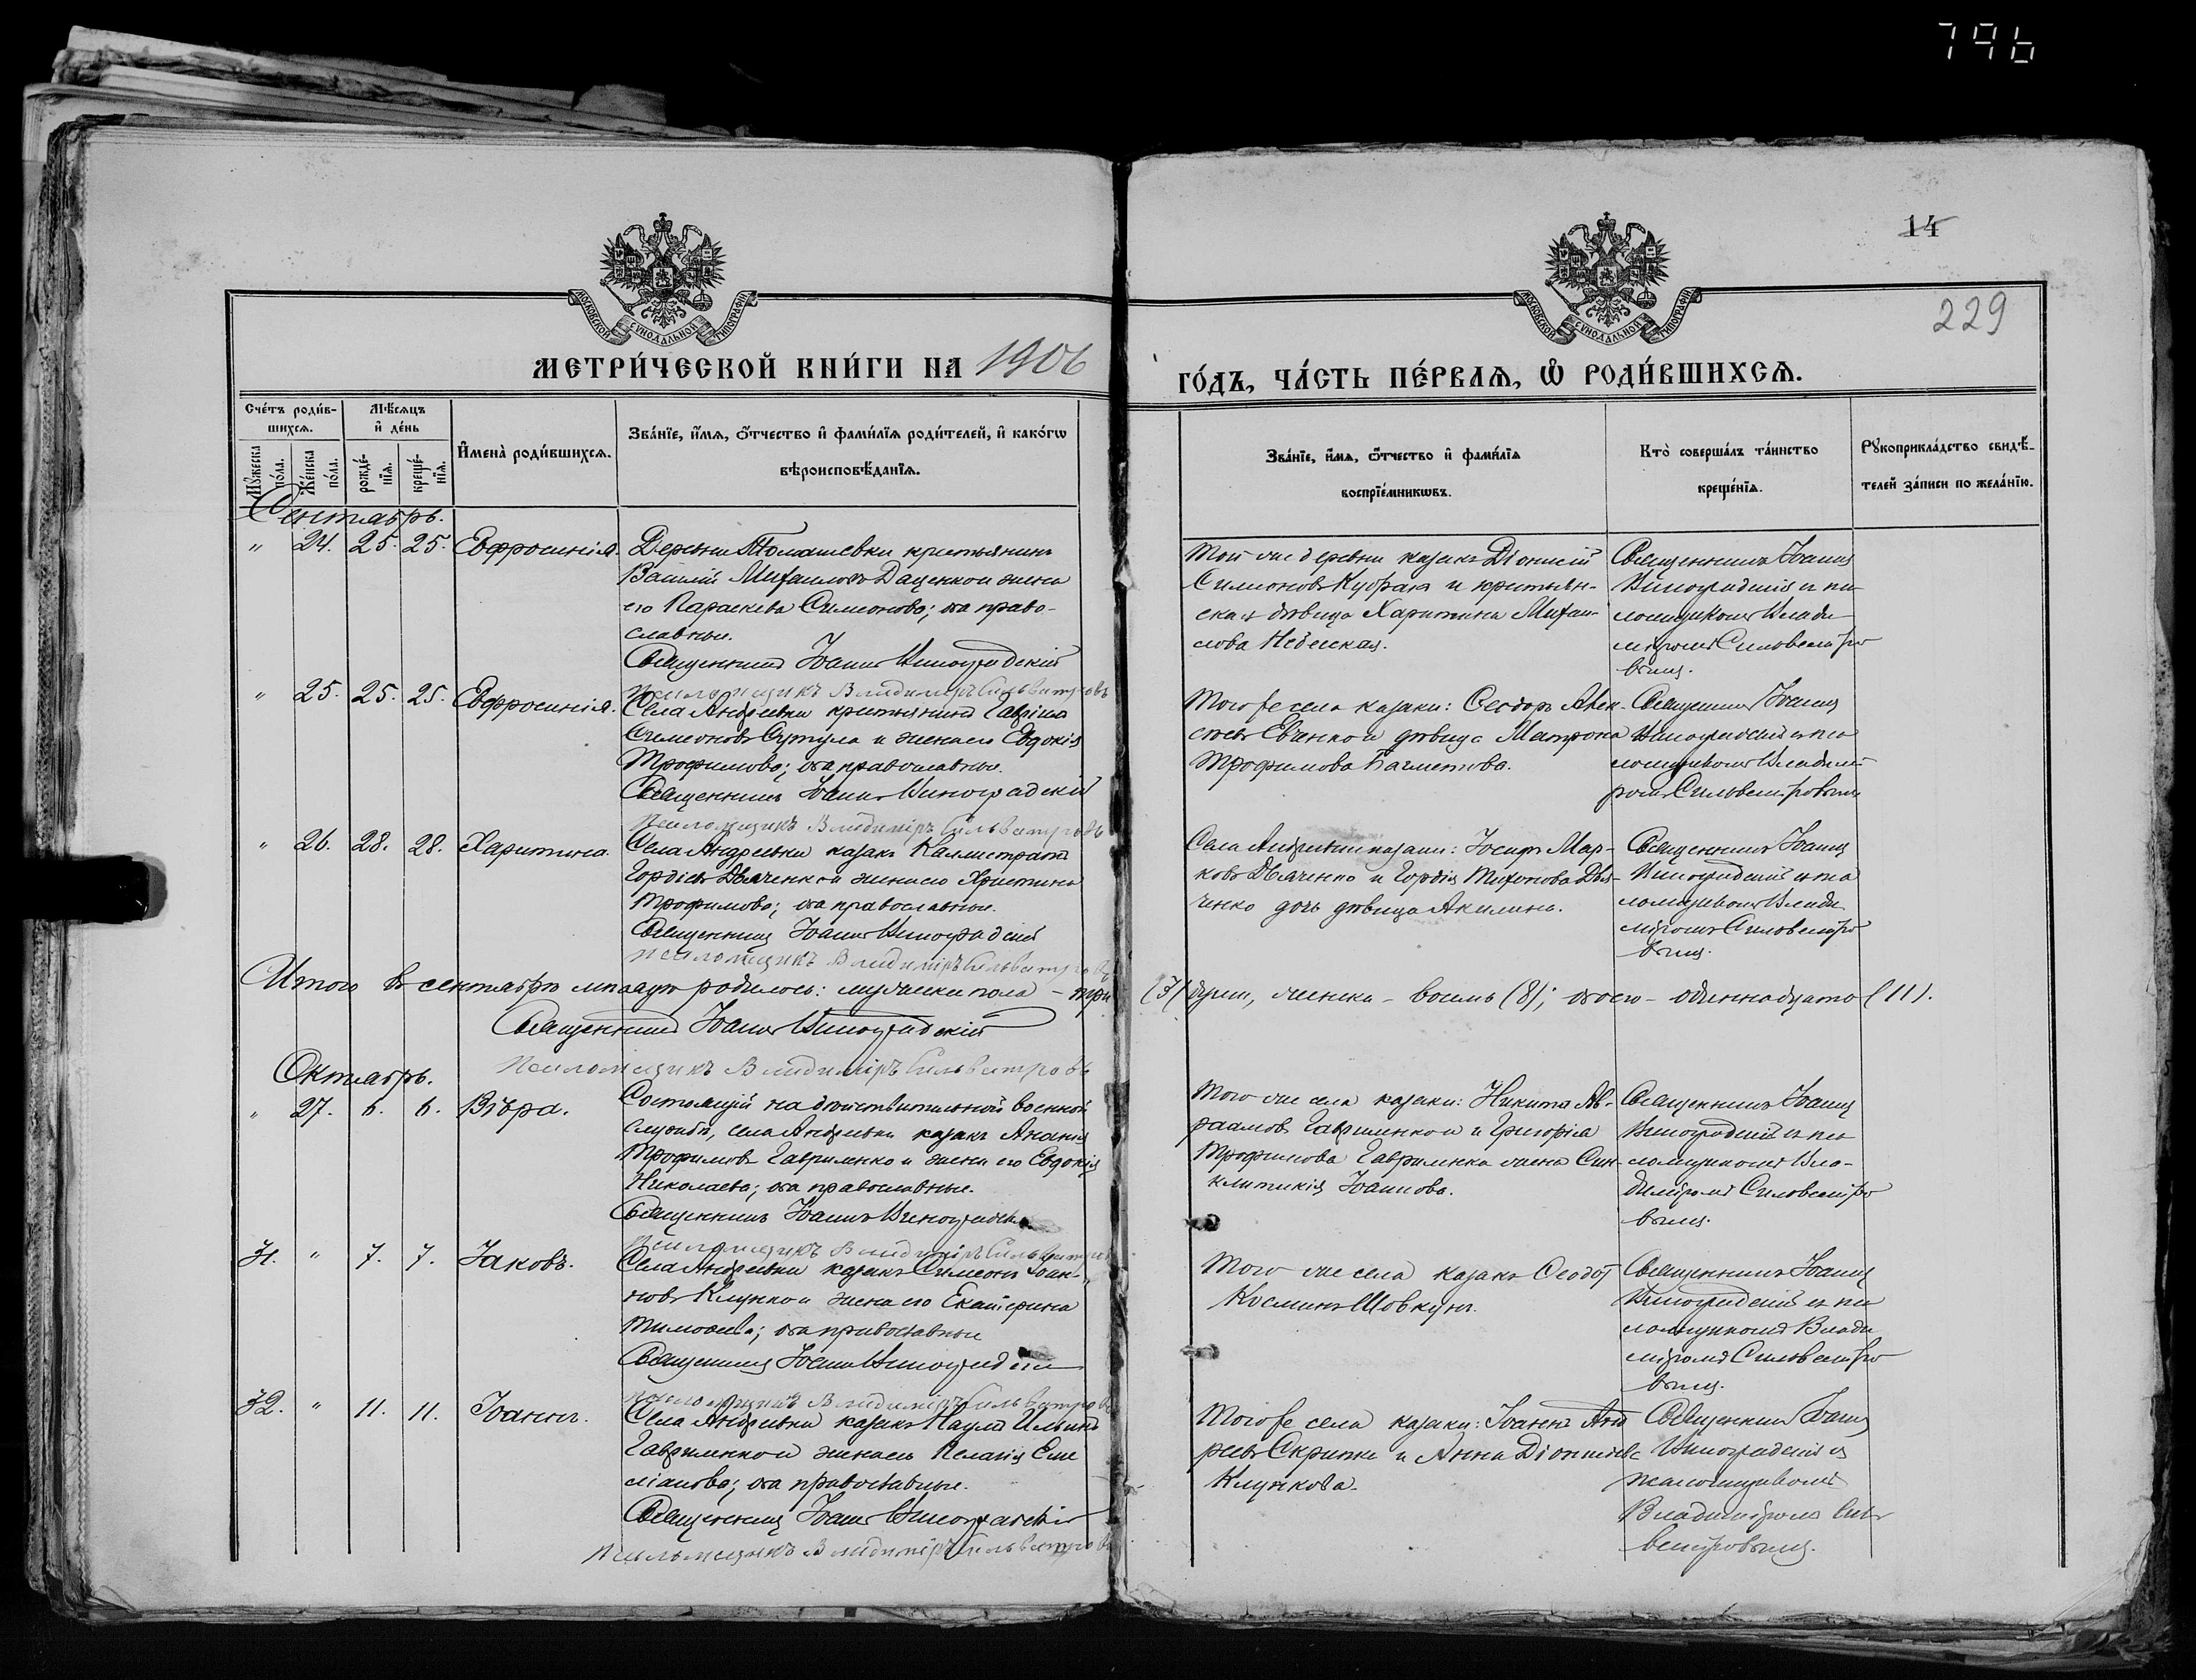 796
14
229
МОСКОВСКОЙ СУНОДАЛЬНОЙ ТИПОГРАФІИ
МОСКОВСКОЙ СУНОДАЛЬНОЙ ТИПОГРАФІИ
МЕТРИ́ЧЕСКОЙ КНИ́ГИ НА 1906
ГО́ДЪ, ЧА́СТЬ ПЕ́РВАѦ, Ѡ҆ РОДИ́ВШИХСѦ.
Сче́тъ роди́в-
шихсѧ.
Мѣ́сѧцъ
и҆ де́нь
И҆мена̀ роди́вшихсѧ.
Зва́нїе, и҆́мѧ, ѻ҆́тчество и҆ фами́лїѧ роди́телей, и҆ како́гѡ
вѣроисповѣ́данїѧ.
Мꙋ́жеска
по́ла.
Же́нска
по́ла.
рожде́-
нїѧ.
креще́-
нїѧ.
Зва́нїе, и҆́мѧ, ѻ҆́тчество и҆ фами́лїѧ
воспрїе́мникѡвъ.
Кто̀ соверша́лъ та́инство
креще́нїѧ.
Рꙋкоприкла́дство свидѣ́-
телей за́писи по жела́нїю.
Сентябрь.
" 24. 25. 25. Евфросинія.
Деревни крестьянинъ
Василій Михаиловъ Даценко и жена
его Параскева Симеонова; оба право-
славные.
Священникъ Іоаннъ Виноградскій
Псаломщикъ Владиміръ Сильвестровъ
Той же деревни казакъ Діонисій
Симеоновъ и крестьян-
ская дѣвица Харитина Михаи-
лова
Священникъ Іоаннъ
Виноградскій съ пса-
ломщикомъ Влади-
міромъ Сильвестро
вымъ.
" 25. 25. 25. Евфросинія.
Села Андреевки крестьянинъ Гавріилъ
Симеоновъ Сутула и жена его Евдокія
Трофимова; оба православные.
Священникъ Іоаннъ Виноградскій
Псаломщикъ Владиміръ Сильвестровъ
Того же села казаки: Ѳеодоръ Алек-
сѣевъ Евченко и дѣвица Матрона
Трофимова
Священникъ Іоаннъ
Виноградскій съ пса
ломщикомъ Владимі-
ромъ Сильвестровымъ
" 26. 28. 28. Харитина.
Села Андреевки казакъ Каллистратъ
Гордіевъ Дяченко и жена его Христина
Трофимова; оба православные.
Священникъ Іоаннъ Виноградскій
Псаломщикъ Владиміръ Сильвестровъ
Села Андреевки казаки: Іосифъ Мар-
ковъ Дяченко и Гордія Тихонова Дя-
ченко дочь дѣвица Акилина.
Священникъ Іоаннъ
Виноградскій съ пса
ломщикомъ Влади
міромъ Сильвестро
вымъ.
Итого въ сентябрѣ мѣсяцѣ родилось: мужеска пола – три
(3) души, женска – восемь (8); обоего – одиннадцать (11).
Священникъ Іоаннъ Виноградскій
Псаломщикъ Владиміръ Сильвестровъ
Октябрь.
" 27. 6. 6. Вѣра.
Состоящій на дѣйствительной военной
службѣ, села Андреевки казакъ Ананія
Трофимовъ Гавриленко и жена его Евдокія
Николаева; оба православные.
Священникъ Іоаннъ Виноградскій
Псаломщикъ Владиміръ Сильвестровъ
Того же села казаки: Никита Ав-
раамовъ Гавриленко и Григорія
Трофимова Гавриленка жена Син-
клитикія Іоаннова.
Священникъ Іоаннъ
Виноградскій съ пса
ломщикомъ Вла-
диміромъ Сильвестро
вымъ.
31. " 7. 7. Іаковъ.
Села Андреевки казакъ Симеонъ Іоан-
новъ Клунко и жена его Екатерина
Тимоѳеева; оба православные
Священникъ Іоаннъ Виноградскій
Псаломщикъ Владиміръ Сильвестровъ
Того же села казакъ Ѳеодотъ
Косминъ Шовкунъ.
Священникъ Іоаннъ
Виноградскій съ пса
ломщикомъ Влади
міромъ Сильвестро
вымъ.
32. " 11. 11. Іоаннъ.
Села Андреевки казакъ Наумъ Ильинъ
Гавриленко и жена его Пелагія Еме
ліанова; оба православные.
Священникъ Іоаннъ Виноградскій
Псаломщикъ Владиміръ Сильвестровъ
Того же села казаки: Іоаннъ Анд
реевъ Скрипка и Анна Діонисіева
Клункова.
Священникъ Іоаннъ
Виноградскій съ
псаломщикомъ
Владиміромъ Силь
вестровымъ.